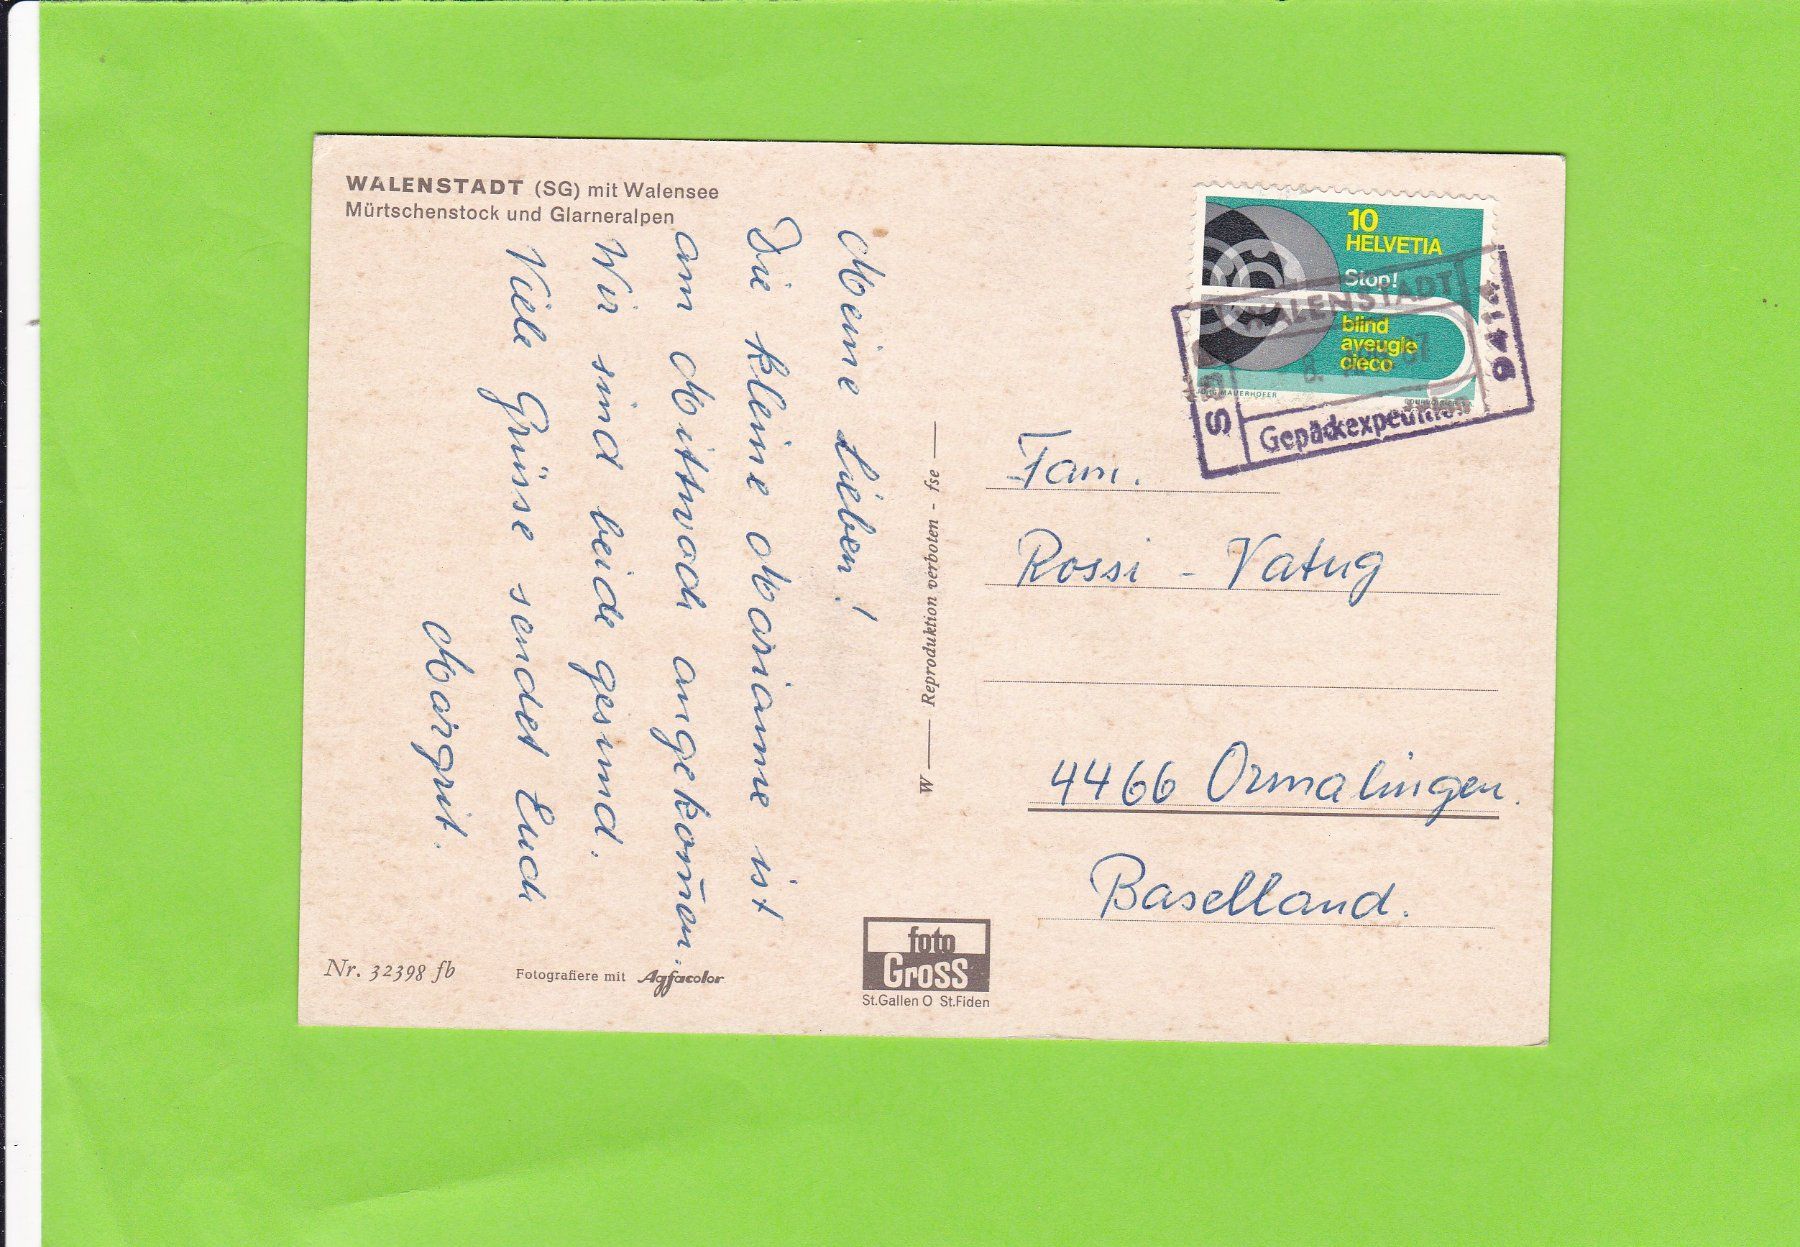 WALENSTADT (SG) mit Walensee
Mürtschenstock und Glarneralpen
Meine Lieben!
Die kleine Marianne ist
am Mittwoch angekom̄en.
Wir sind beide gesund.
Viele Grüsse sendet Euch
Margrit.
Nr. 32398 fb
Fotografiere mit Agfacolor
W — Reproduktion verboten - fse —
foto
Gross
St.Gallen O St.Fiden
10
HELVETIA
Stop!
blind
aveugle
cieco
MAUERHOFER
WALENSTADT
SBB
9414
Gepäckexpedition
Fam.
Rossi - Vatug
4466 Ormalingen.
Baselland.